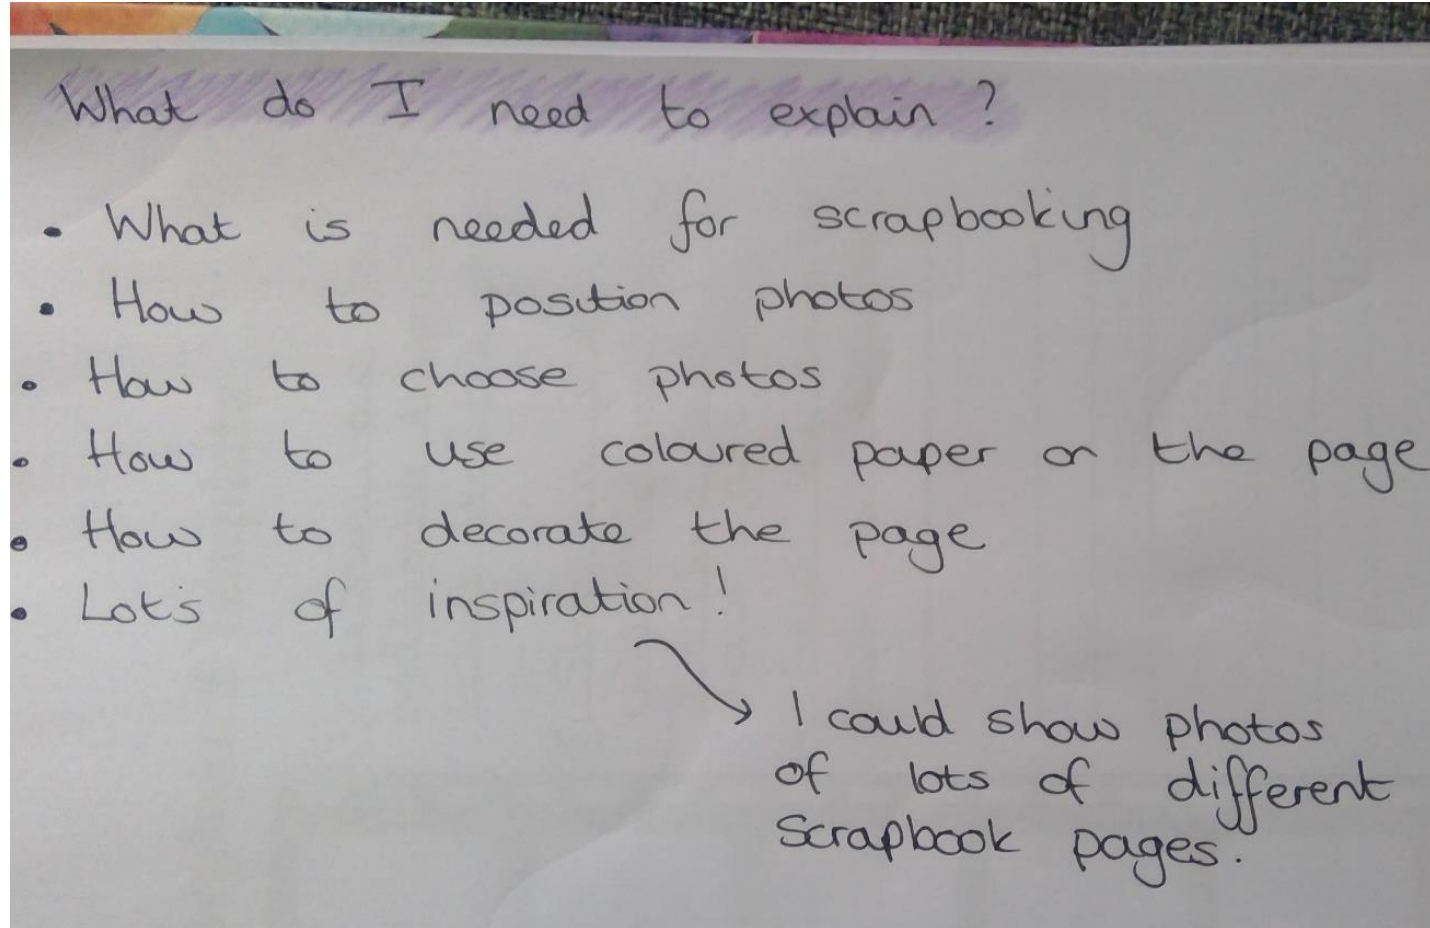 What do I need to explain?
• What is needed for scrapbooking
• How to position photos
• How to choose photos
• How to use coloured paper on the page
• How to decorate the page
• Lot's of inspiration!
I could show photos
of lots of different
scrapbook pages.